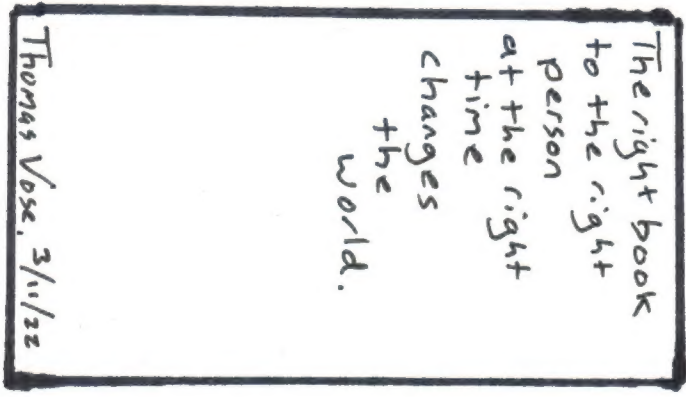 The right book
to the right
person
at the right
time
changes
the
world.
Thomas Vose. 3/11/22